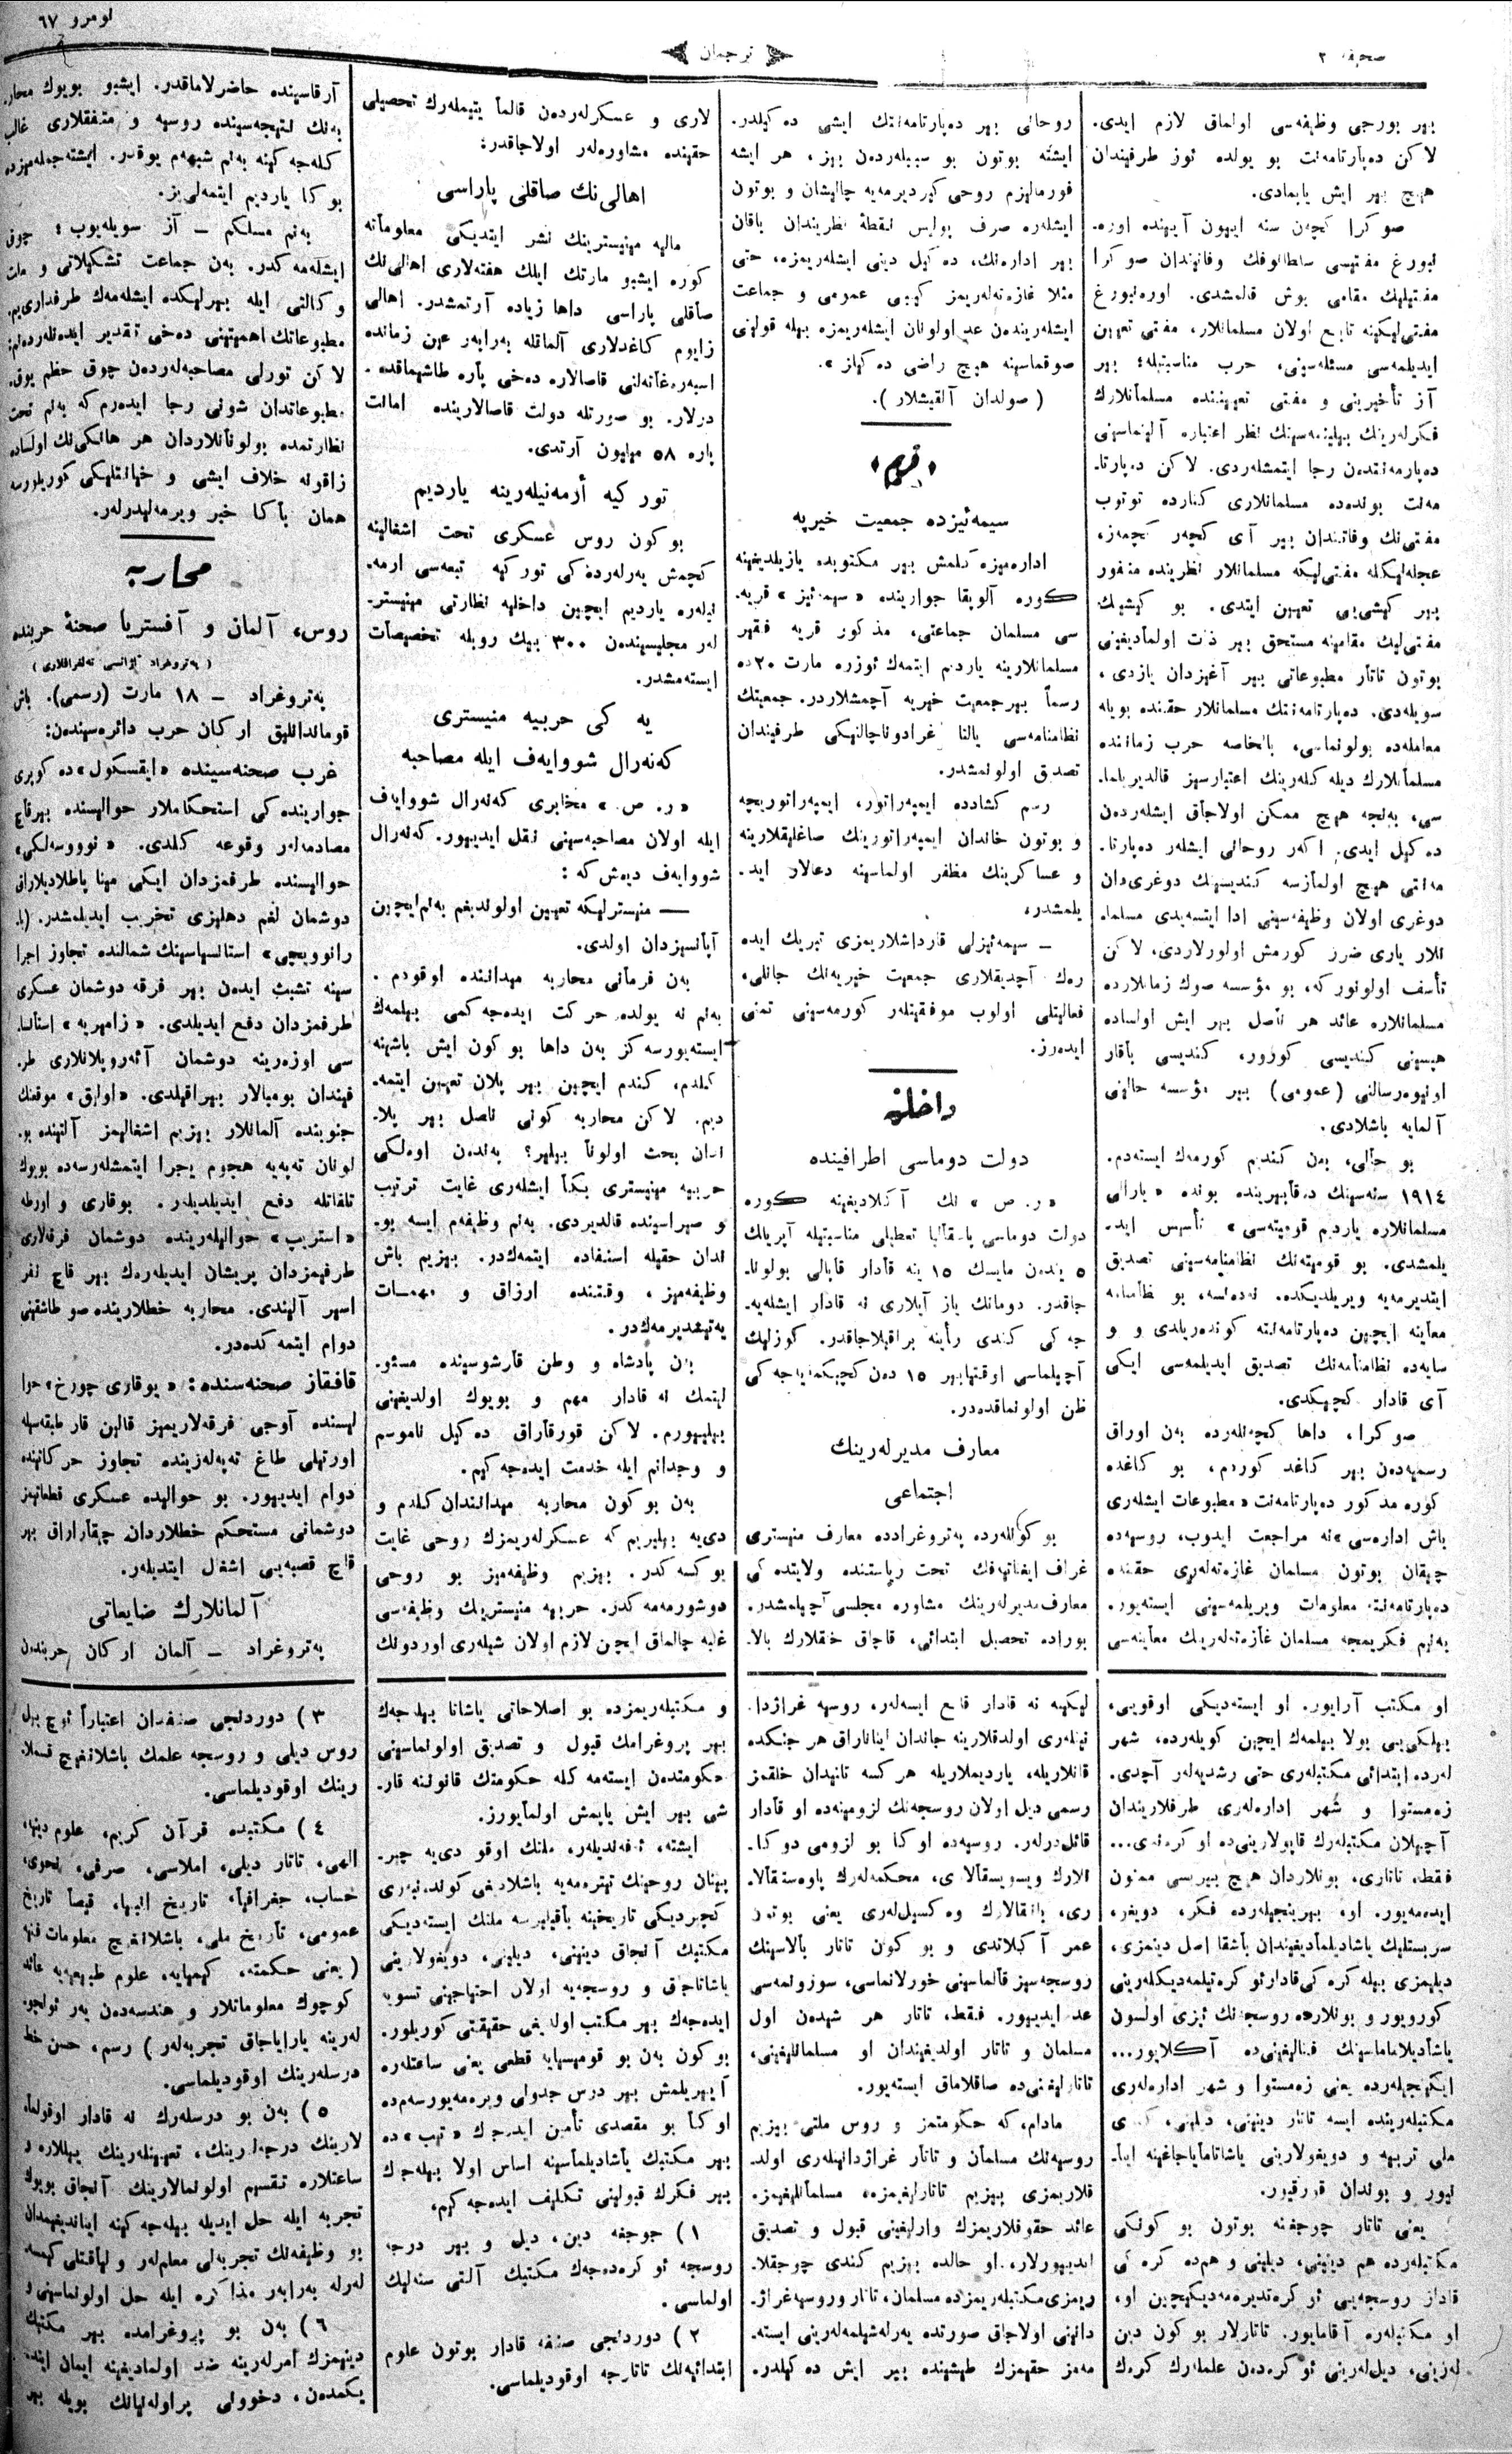 صحیفه ۲
ترجمان
نومرو ٦٧
بیر بورجی وظیفه‌سی اولماق لازم ایدی.
لاکن ده‌پارتامه‌نت بو یولده ئوز طرفیندن
هیچ بیر ایش یاپمادی.
صوکرا کچه‌ن سنه اییون آیینده اوره‌ـ
نبورغ مفتیسی سلطانوفك وفاتیندان صوکرا
مفتیلیك مقامی بوش قالمشدی. اوره‌نبورغ
مفتی‌لیكینه تابع اولان مسلمانلار، مفتی تعیین
ایدیلمه‌سی مسئله‌سینی، حرب مناسبتیله؛ بیر
آز تأخیرینی و مفتی تعیینینده مسلمانلارك
فکرلرینك بیلینمه‌سینك نظر اعتباره آلینماسینی
ده‌پارمه‌نتدن رجا ایتمشلردی. لاکن ده‌پارتاـ
مه‌نت بونده‌ده مسلمانلاری کنارده توتوب
مفتی‌نك وفاتندان بیر آی کچه‌ر کچمه‌ز،
عجله‌لیكله مفتی‌لیكه مسلمانلار نظرینده منفور
بیر کیشی‌یی تعیین ایتدی. بو کیشینك
مفتی‌لیك مقامینه مستحق بیر ذات اولمادیغینی
بوتون تاتار مطبوعاتی بیر آغیزدان یازدی،
سویله‌دی. ده‌پارتامه‌نتك مسلمانلار حقنده بویله
معامله‌ده بولونماسی، بالخاصه حرب زماننده
مسلمانلارك دیله‌کلرینك اعتبارسیز قالدیریلماـ
سی، به‌نجه هیچ ممکن اولاجاق ایشلردن
ده‌کیل ایدی. اکر روحانی ایشلر ده‌پارتاـ
مه‌نتی هیچ اولمازسه کندیسینك دوغری‌دان
دوغری اولان وظیفه‌سینی ادا ایتسه‌یدی مسلماـ
نلار یاری ضرر کورمش اولورلاردی، لاکن
تأسف اولونور که، بو مؤسسه صوك زمانلارده
مسلمانلاره عائد هر ناصل بیر ایش اولساده
هپسینی کندیسی کورور، کندیسی باقار
اونیوه‌رسالنی (عمومی) بیر مؤسسه حالینی
آلمایه باشلادی.
بو حالی، به‌ن کندیم کورمه‌ك ایسته‌دم.
١٩١٤ سنه‌سینك ده‌قابیرینده بونده «یارالی
مسلمانلاره یاردیم قومیته‌سی» تأسیس ایدـ
یلمشدی. بو قومیته‌نك نظامنامه‌سینی تصدیق
ایتدیرمه‌یه ویریلدیکده. نه‌ده‌نسه، بو نظامنامه
معاینه ایچون ده‌پارتامه‌نته کونده‌ریلدی و و
سایه‌ده نظامنامه‌نك تصدیق ایدیلمه‌سی ایکی
آی قادار کچیکدی.
صوکرا، داها کچه‌نلرده به‌ن اوراق
رسمیه‌دن بیر کاغد کوردم، بو کاغده
کوره مذکور ده‌پارتامه‌نت «مطبوعات ایشلری
باش اداره‌سی»نه مراجعت ایدوب، روسیه‌ده
چیقان بوتون مسلمان غازه‌ته‌لری حقنده
ده‌پارتامه‌نته معلومات ویریلمه‌سینی ایسته‌یور.
به‌نم فکریمجه مسلمان غازه‌ته‌لرینك معاینه‌سی
روحانی بیر ده‌پارتامه‌نتك ایشی ده‌کیلدر.
ایشته بوتون بو سببلردن بیز، هر ایشه
فورمالیزم روحی کیردیرمه‌یه چالیشان و بوتون
ایشلره صرف پولیس نقطۀ نظریندان باقان
بیر اداره‌نك، ده‌کیل دینی ایشلریمزه، حتی
مثلا غازه‌ته‌لریمز کیبی عمومی و جماعت
ایشلریندن عد اولونان ایشلریمزه بیله قولینی
صوقماسینه هیچ راضی ده‌کیلز».
(صولدان آلقیشلار).
«قریم»
سیمه‌ئیزده جمعیت خیریه
اداره‌میزه کلمش بیر مکتوبده یازیلدیغینه
کوره آلوپقا جوارینده «سیمه‌ئیز» قریه‌ـ
سی مسلمان جماعتی، مذکور قریه فقیر
مسلمانلارینه یاردم ایتمه‌ك ئوزره مارت ٢٠ده
رسماً بیر جمعیت خیریه آچمشلاردر. جمعیتك
نظامنامه‌سی یالتا غرادوناچالنیکی طرفیندان
تصدیق اولونمشدر.
رسم کشادده ایمپه‌راتور، ایمپه‌راتوریچه
و بوتون خاندان ایمپه‌راتورینك صاغلیقلارینه
و عساکرینك مظفر اولماسینه دعالار ایدـ
یلمشدر.
ـ سیمه‌ئیزلی قارداشلاریمزی تبریك ایده
ره‌ك آچدیقلاری جمعیت خیریه‌نك جانلی،
فعالیتلی اولوب موفقیتلر کورمه‌سینی تمنی
ایده‌رز.
داخلیه
دولت دوماسی اطرافینده
«ر. ص» نك آکلادیغینه کوره
دولت دوماسی پاسقالیا تعطیلی مناسبتیله آپریلك
٥ یندن مایسك ١٥ ینه قادار قاپالی بولوناـ
جاقدر. دومانك یاز آیلاری نه قادار ایشله‌یه‌ـ
جه‌کی کندی رأینه براقیلاجاقدر. کوزلیك
آچیلماسی اوقتیابیر ١٥ دن کچیکمه‌یه‌جه‌کی
ظن اولونماقده‌در.
معارف مدیرلرینك
اجتماعی
بو کونلرده په‌تروغرادده معارف منیستری
غراف ایغناتیه‌فك تحت ریاستنده ولایتده‌کی
معارف مدیرلرینك مشاوره مجلسی آچیلمشدر.
بوراده تحصیل ابتدائی، قاچاق خلقلارك بالاـ
لاری و عسکرلردن قالما یتیملرك تحصیلی
حقینده مشاوره‌لر اولاجاقدر:
اهالی‌نك صاقلی پاراسی
مالیه مینیسترینك نشر ایتدیکی معلوماته
کوره ایشبو مارتك ایلك هفته‌لاری اهالی‌نك
صاقلی پاراسی داها زیاده آرتمشدر. اهالی
زایوم کاغدلاری آلماقله به‌رابه‌ر عین زمانده
اسبه‌ره‌غاته‌لنی قاصالاره ده‌خی پاره طاشیماقده‌ـ
درلار. بو صورتله دولت قاصالارینده امانت
پاره ٥٨ میلیون آرتدی.
تورکیه أرمه‌نیلرینه یاردیم
بوکون روس عسکری تحت اشغالینه
کچمش یرلرده‌کی تورکیه تبعه‌سی ارمه‌ـ
نیلره یاردیم ایچین داخلیه نظارتی مینیسترـ
لر مجلیسیندن ٣٠٠ بیك روبله تخصیصات
ایسته‌مشدر.
یه‌کی حربیه منیستری
که‌نه‌رال شووایه‌ف ایله مصاحبه
«ر. ص.» مخابری که‌نه‌رال شووایه‌ف
ایله اولان مصاحبه‌سینی نقل ایدییور. که‌نه‌رال
شووایه‌ف دیمش که:
— منیسترلیکه تعیین اولوندیغم به‌نم‌ایچون
آپانسیزدان اولدی.
به‌ن فرمانی محاربه میدانینده اوقودم.
به‌نم نه یولده حرکت ایده‌جه‌کمی بیلمه‌ك
ایسته‌یورسه‌کز به‌ن داها بوکون ایش باشینه
کلدم، کندم ایچین بیر پلان تعیین ایتمه‌ـ
دیم. لاکن محاربه کونی ناصل بیر پلاـ
ندان بحث اولونا بیلیر؟ به‌ندن اوه‌لکی
حربیه مینیستری بکا ایشلری غایت ترتیب
و صیراسینده قالدیردی. به‌نم وظیفه‌م ایسه بوـ
ندان حقیله استفاده ایتمه‌ك‌در. بیزیم باش
وظیفه‌میز، وقتنده ارزاق و مهمات
یه‌تیشدیرمه‌ك‌در.
به‌ن پادشاه و وطن قارشوسینده مسئوـ
لیتمك نه قادار مهم و بویوك اولدیغینی
بیلییورم. لاکن قورقاراق ده‌کیل ناموسم
و وجدانم ایله خدمت ایده‌جه‌کیم.
به‌ن بوکون محاربه میدانندان کلدم و
دیه بیلیریم که عسکرلریمزك روحی غایت
یوکسه‌کدر. بیزیم وظیفه‌میز بو روحی
دوشورمه‌مه‌کدر. حربیه منیسترینك وظیفه‌سی
غلبه چالماق ایچین لازم اولان شیلری اوردونك
آرقاسینده حاضرلاماقدر. ایشبو بویوك محارـ
به‌نك نتیجه‌سینده روسیه و متفقلاری غالب
کله‌جه‌کینه به‌نم شبهه‌م یوقدر. ایشته جمله‌میزده
بوکا یاردیم ایتمه‌لی‌یز.
به‌نم مسلکم — آز سویله‌یوب؛ چوق
ایشله‌مه‌کدر. به‌ن جماعت تشکیلاتی و ملت
وکالتی ایله بیرلیکده ایشله‌مه‌ك طرفداری‌یم.
مطبوعاتك اهمیتینی ده‌خی تقدیر ایده‌نلرده‌نم؛
لاکن تورلی مصاحبه‌لردن چوق حظم یوق.
مطبوعاتدان شونی رجا ایده‌رم که به‌نم تحت
نظارتمده بولونانلاردان هر هانکی‌نك اولساده
زاقونه خلاف ایشی و خیانتلیکی کوریلورسه
همان باکا خبر ویرمه‌لیدرلر.
محاربه
روس، آلمان و آفستریا صحنۀ حربنده
(په‌تروغراد آژانسی تلغرافلاری)
په‌تروغراد — ١٨ مارت (رسمی). باش
قوماندانلیق ارکان حرب دائره‌سیندن:
غرب صحنه‌سینده «ایقسکول»ده کوپری
جوارینده‌کی استحکاملار حوالیسنده بیرقاچ
مصادمه‌لر وقوعه کلدی. «نوووسه‌لکی»
حوالیسنده طرفمزدان ایکی مینا پاطلادیلاراق
دوشمان لغم دهلیزی تخریب ایدیلمشدر. (باـ
رانوویچی» استانسیاسینك شمالنده تجاوز اجرا
سینه تشبث ایدن بیر فرقه دوشمان عسکری
طرفمزدان دفع ایدیلدی. «زامیریه» استانسیاـ
سی اوزرینه دوشمان آئه‌روپلانلاری طرـ
فیندان بومبالار بیراقیلدی. «اولیق» موقعنك
جنوبنده آلمانلار بیزیم اشغالیمز آلتینده بوـ
لونان تپه‌یه هجوم یجرا ایتمشلرسه‌ده بویوك
تلفاتله دفع ایدیلدیلر. یوقاری و اورطه
«استریپ» حوالیلرینده دوشمان فرقه‌لاری
طرفیمزدان پریشان ایدیلره‌ك بیر قاچ نفر
اسیر آلیندی. محاربه خطلارینده صو طاشقینی
دوام ایتمه‌کده‌در.
قافقاز صحنه‌سنده: «یوقاری چورخ» حواـ
لیسنده آوجی فرقه‌لاریمیز قالین قار طبقه‌سیله
اورتیلی طاغ تپه‌لرینده تجاوز حرکاتینه
دوام ایدییور. بو حوالیده عسکری قطعاتیمز
دوشمانی مستحکم خطلاردان چیقاراراق بیر
قاچ قصبه‌یی اشغال ایتدیلر.
آلمانلارك ضایعاتی
په‌تروغراد — آلمان ارکان حربندن
او مکتب آرایور. او ایسته‌دیکی اوقویی،
بیلکی‌یی بولا بیلمه‌ك ایچین کویلرده، شهر
لرده ابتدائی مکتبلری حتی رشدیه‌لر آچدی.
زه‌مستوا و شهر اداره‌لری طرفلاریندان
آچیلان مکتبلرك قاپولارینی‌ده او کره‌ندی...
فقط، تاتاری، بونلاردان هیچ بیریسی ممنون
ایده‌مه‌یور. او، بیرینجیلرده فکر، دویغو،
سربستلیك یاشادیلمادیغیندان باشقا اصل دینمزی،
دیلیمزی بیله کره‌کی‌قادار ئوکره‌تیلمه‌دیکلرینی
کورویور و بونلارده روسجه‌نك ئیزی اولسون
یاشادیلاماماسینك فنالیغینی‌ده آکلایور...
ایکینجیلرده یعنی زه‌مستوا و شهر اداره‌لری
مکتبلرینده ایسه تاتار دینینی، دیلینی، کندی
ملی تربیه و دویغولارینی یاشاتامایاجاغینه ایناـ
نیور و بوندان قورقیور.
یعنی تاتار چوجغنه بوتون بو کونکی
مکتبلرده هم دینینی، دیلینی و هم‌ده کره‌کی
قادار روسجه‌یی ئوکره‌تدیره‌مه‌دیکیچین او،
او مکتبلره آقامایور. تاتارلار بوکون دین
لرینی، دیل‌لرینی ئوکره‌دن علملرك کره‌ك
لیکینه نه قادار قانع ایسه‌لر، روسیه غراژداـ
نینلری اولدقلارینه جاندان ایناناراق هر جنکده
قانلاریله، یاردیملاریله هر کسه تانیدان خلقمز
رسمی دیل اولان روسجه‌نك لزومینه‌ده او قادار
قائل‌درلر. روسیه‌ده اوکا بو لزومی دوکاـ
نلارك ویویسقالاری، محکمه‌لرك پاوه‌ستقالاـ
ری، بانقالارك وه‌کسیل‌لری یعنی بوتون
عمر آکلاتدی و بوکون تاتار بالاسینك
روسجه‌سیز قالماسینی خورلانماسی، سوزولمه‌سی
عد ایدییور. فقط، تاتار هر شیدن اول
مسلمان و تاتار اولدیغیندان او مسلمانلیغینی،
تاتارلیغینی‌ده صاقلاماق ایسته‌یور.
مادام، که حکومتمز و روس ملتی بیزیم
روسیه‌نك مسلمان و تاتار غراژدانینلری اولدـ
قلاریمزی بیزیم تاتارلیغیمزه، مسلمانلیغیمزه
عائد حقوقلاریمزك وارلیغینی قبول و تصدیق
ایدییورلار، او حالده بیزیم کندی چوجقلاـ
ریمزی مکتبلریمزده مسلمان، تاتار و روسیه غراژـ
دانینی اولاجاق صورتده یرله‌شیلمه‌لرینی ایسته‌ـ
مه‌مز حقیمزك طیشینده بیر ایش ده‌کیلدر.
و مکتبلریمزده بو اصلاحاتی یاشاتا بیله‌جه‌ك
بیر پروغرامك قبول و تصدیق اولونماسینی
حکومتدن ایسته‌مه‌کله حکومتك قانوننه قارـ
شی بیر ایش یاپمش اولمایورز.
ایشته، ئه‌فه‌ندیلر، ملتك اوقو دی‌یه چیرـ
پینان روحینك تیتره‌مه‌یه باشلادیغی کوندنبری
کچیردیکی تاریخینه باقیلیرسه ملتك ایسته‌دیکی
مکتبك آنجاق دینینی، دیلینی، دویغولارینی
یاشاتاجاق و روسجه‌یه اولان احتیاجینی تسویه
ایده‌جه‌ك بیر مکتب اولدیغی حقیقتی کوریلور.
بوکون به‌ن بو قومیسیایه قطعی یعنی ساعتلره
آیریلمش بیر درس جدولی ویره‌مه‌یورسه‌م‌ده
اوکا بو مقصدی تأمین ایده‌جك «تیپ» ده
بیر مکتبك یاشادیلماسینه اساس اولا بیله‌جه‌ك
بیر فکرك قبولینی تکلیف ایده‌جه‌کیم.
١) جوجغه دین، دیل و بیر درجه
روسجه ئوکره‌ده‌جه‌ك مکتبك آلتی سنه‌لیك
اولماسی.
٢) دوردنجی صنفه قادار بوتون علوم
ابتدائیه‌نك تاتارجه اوقودیلماسی.
٣) دوردنجی صنفدان اعتباراً ئوچ ییل
روس دیلی و روسجه علمك باشلانغیچ قسملاـ
رینك اوقودیلماسی.
٤) مکتبده قرآن کریم، علوم دینیه،
الهی، تاتار دیلی، املاسی، صرفی، نحوی،
حساب، جغرافیا، تاریخ انبیا، قیصا تاریخ
عمومی، تاریخ ملی، باشلانغیچ معلومات فنیه
(یعنی حکمته، کیمیایه، علوم طبیعیه‌یه عائد
کوچوك معلوماتلار و هندسه‌دن یر ئولچوـ
لرینه یارایاجاق تجربه‌لر) رسم، حسن خط
درسلرینك اوقودیلماسی.
٥) به‌ن بو درسلرك نه قادار اوقولماـ
لارینك درجه‌لرینك، تعیینلرینك ییللاره و
ساعتلاره تقسیم اولونمالارینك آنجاق بویوك
تجربه ایله حل ایدیله بیله‌جه‌کینه ایناندیغیمدان
بو وظیفه‌نك تجربه‌لی معلم‌لر و لیاقتلی کیمسه
لرله به‌رابه‌ر مذاکره ایله حل اولونماسینی و
٦) به‌ن بو پروغرامده بیر مکتبك
دینیمزك أمرلرینه ضد اولمادیغینه ایمان ایتدـ
یکمدن، دخوونی پراوله‌نیانك بویله بیر